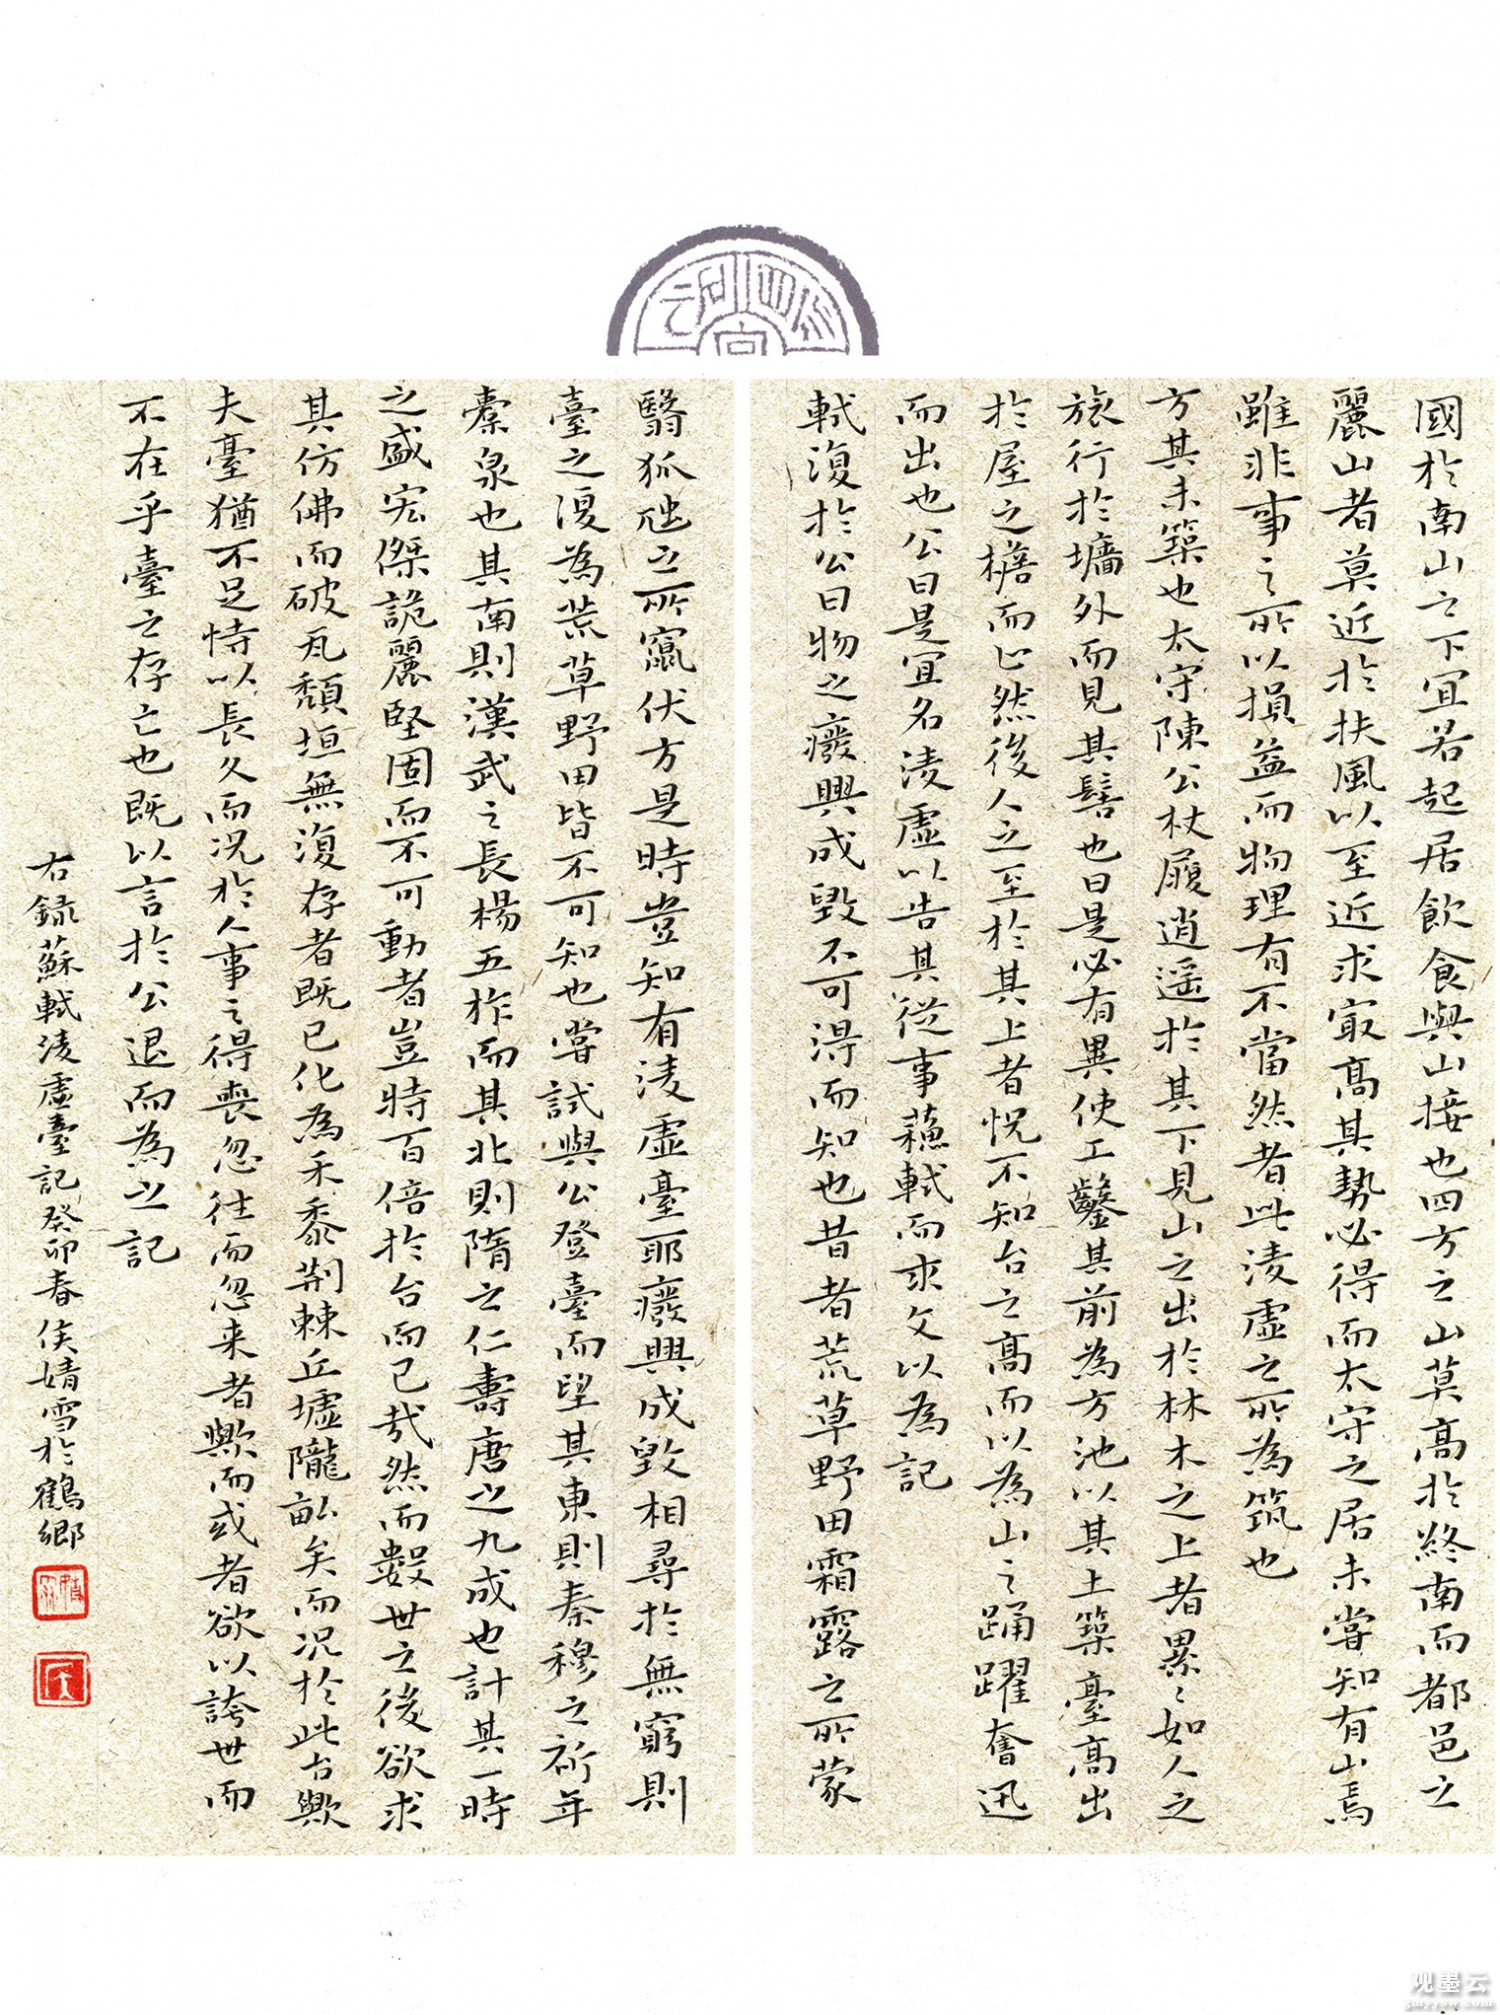 國於南山之下宜若起居飲食與山接也四方之山莫高於終南而都邑之
麗山者莫近於扶風以至近求冣高其勢必得而太守之居未嘗知有山焉
雖非事之所以損益而物理有不當然者此淩虛之所為筑也
方其未築也太守陳公杖屨逍遥於其下見山之出於林木之上者累々如人之
旅行於墻外而見其髻也曰是必有異使工鑿其前為方池以其土築臺高出
於屋之檐而止然後人之至於其上者怳不知台之高而以為山之踊躍奮迅
而出也公曰是宜名淩虛以告其從事蘓軾而求文以為記
軾復於公曰物之癈興成毀不可淂而知也昔者荒草野田霜露之所蒙
翳狐虺之所竄伏方是時豈知有淩虛臺耶癈興成毀相尋於無窮則
臺之復為荒草野田皆不可知也嘗試與公登臺而望其東則秦穆之祈年
橐泉也其南則漢武之長楊五柞而其北則隋之仁壽唐之九成也計其一時
之盛宏傑詭麗堅固而不可動者豈特百倍於台而已哉然而數世之後欲求
其仿佛而破瓦頹垣無復存者既已化為禾黍荆棘丘墟隴畝矣而况於此台歟
夫臺猶不足恃以長久而况於人事之得喪忽往而忽来者歟而或者欲以誇世而
不在乎臺之存亡也既以言於公退而為之記
右録蘇軾淩虛臺記癸卯春侯婧雪於鶴鄉
观墨云